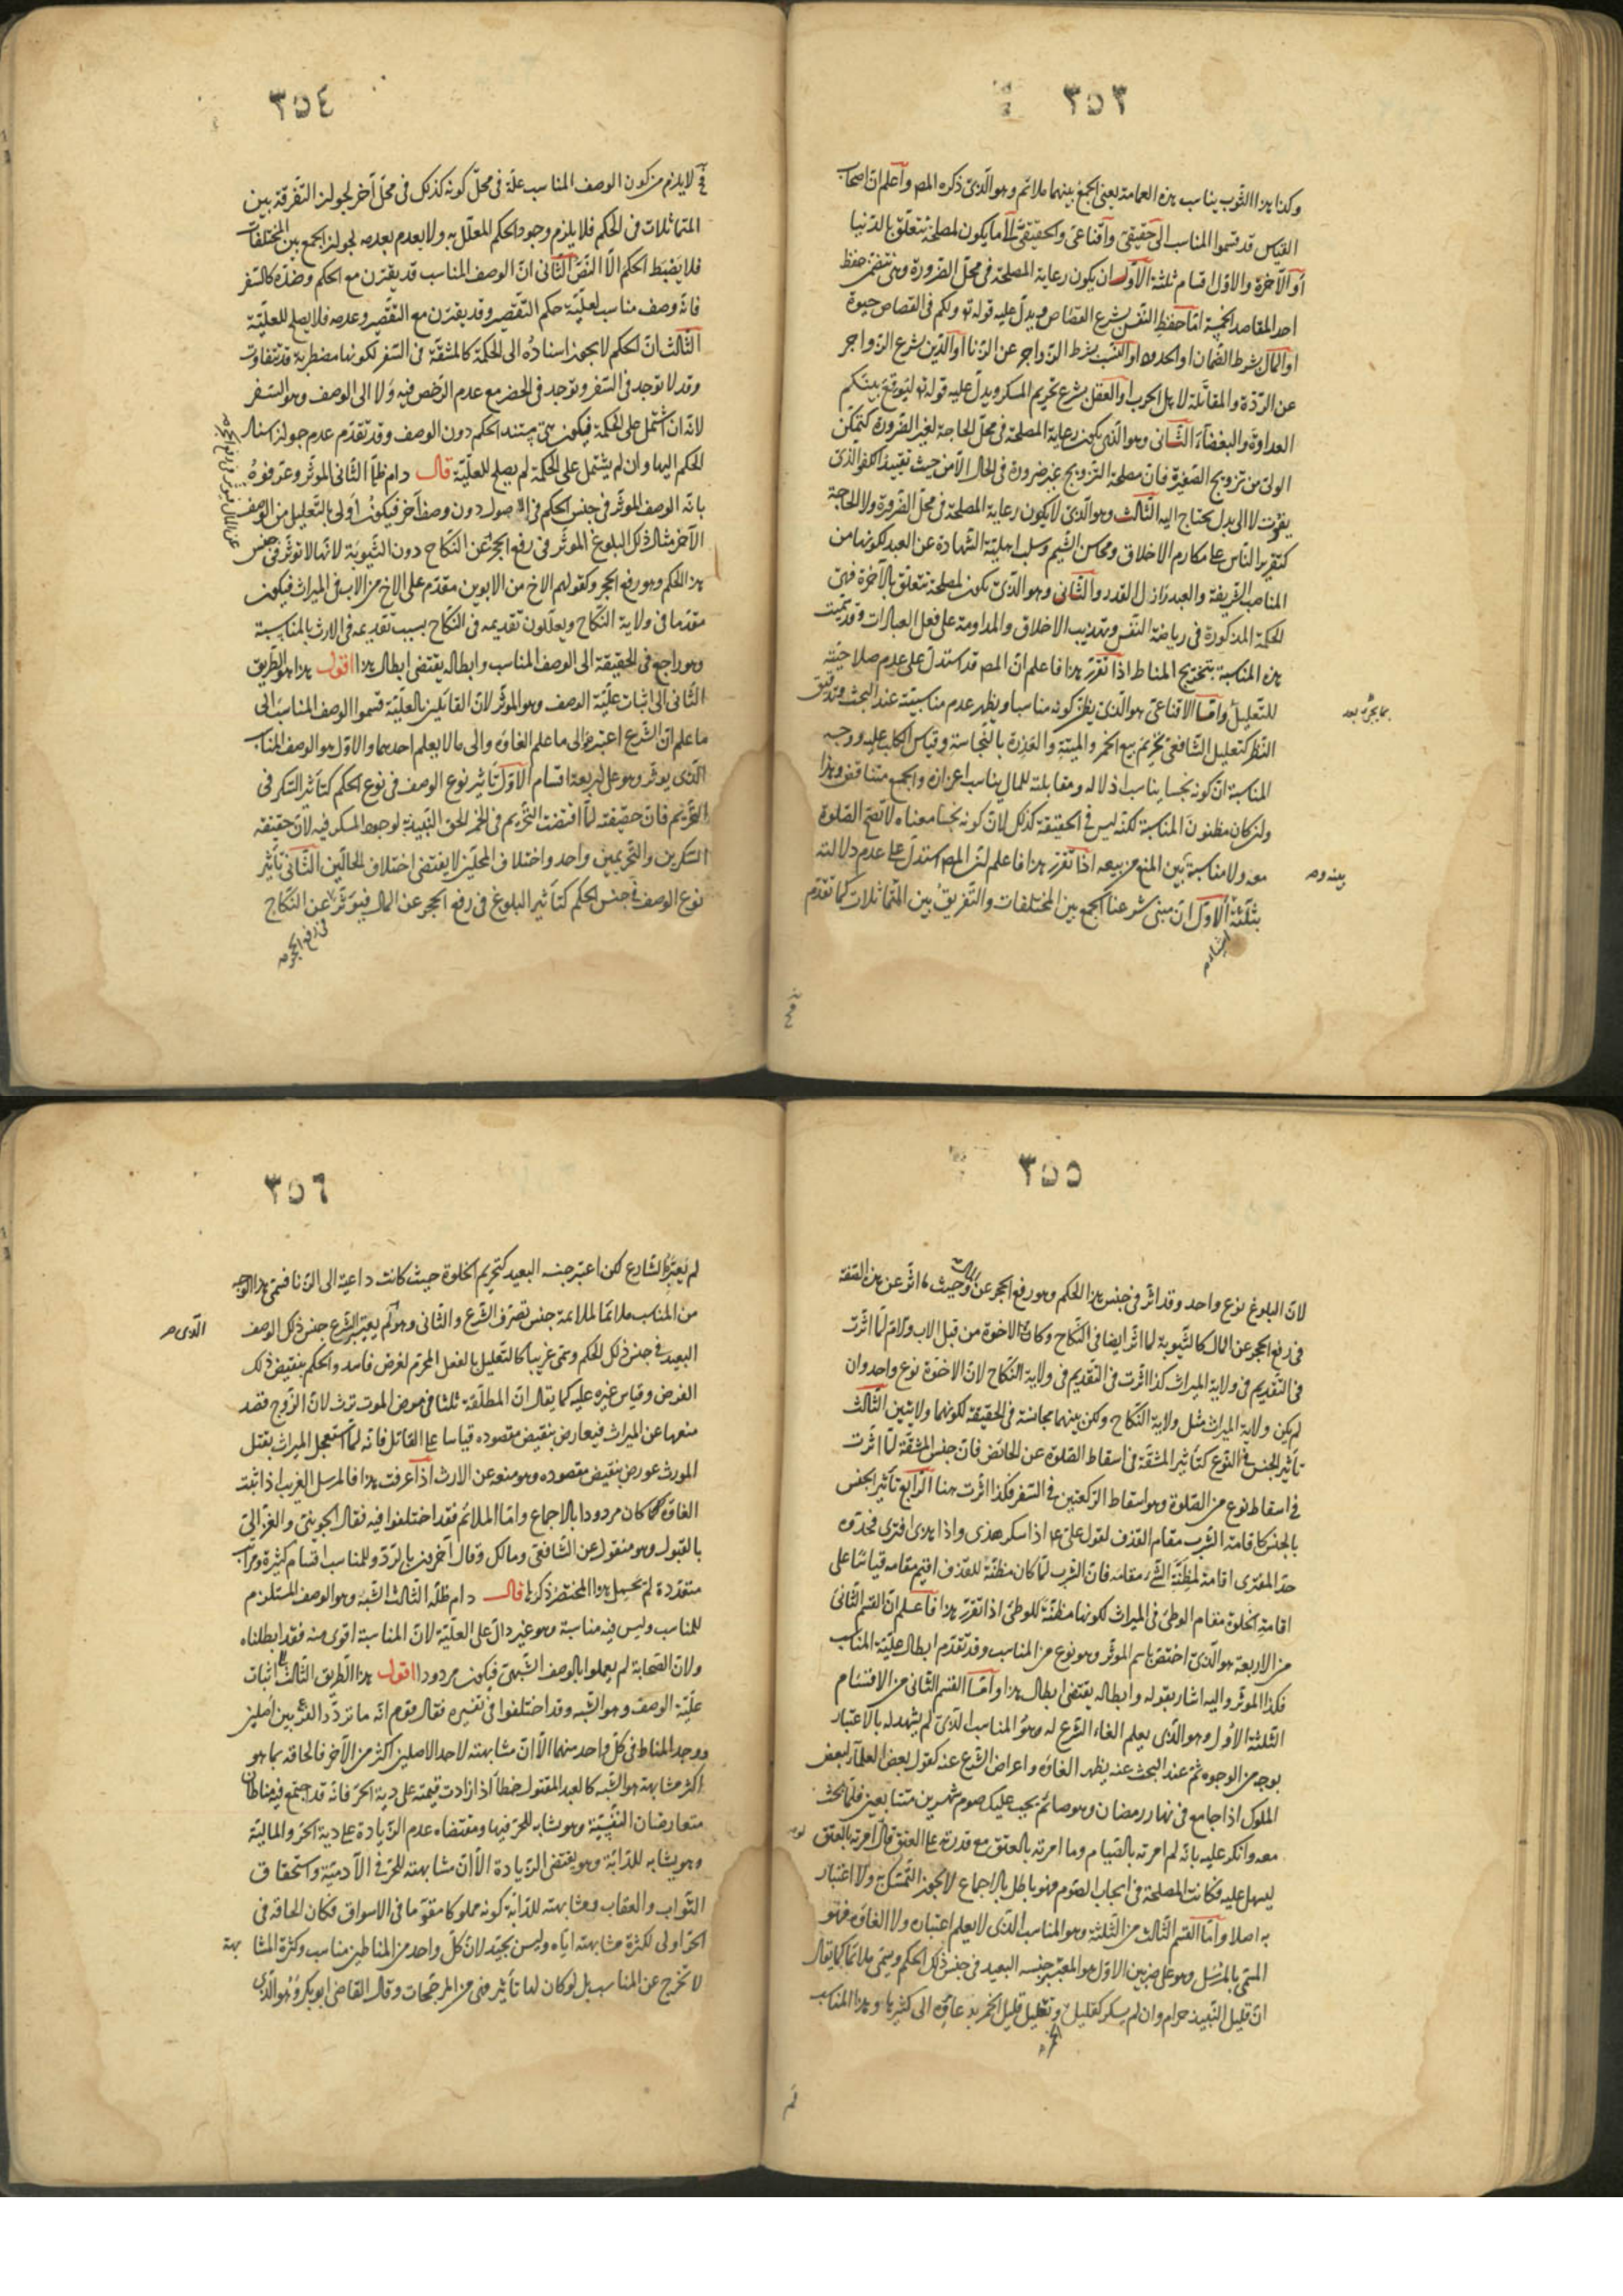 ٣٥٣
وكذا هذا الثوب يناسب هذه العمامة يعنى الجمع بينهما ملائم وهو الّذى ذكره المص وآعلم ان اصحاب
القياس قد قسموا المناسب الى حقيقى واقناعى والحقيقىّ الى ما يكون لمصلحة تتعلّق بالدنيا
أو الآخرة والاوّل اقسام ثلثة الأوّل ان يكون رعاية المصلحة فى محلّ الضرورة وهى تتضمّن حفظ
احد المقاصد الخمسة امّا حفظ النّفس بشرع القصاص ويدلّ عليه قوله تع ولكم فى القصاص حيوة
او المال بشرط الضّمان او الحدود او النسب بشرط الزّواجر عن الزنا او الدّين بشرع الزواجر
عن الرّدّة والمقاتلة لاهل الحرب او العقل بشرع تحريم المسكر ويدلّ عليه قوله تع ليوقع بينكم
العداوة والبغضآء الثّانى وهو الّذى يكون رعاية المصلحة فى محلّ الحاجة لغير الضرورة كتمكّن
الولى من تزويج الصّغيرة فانّ مصلحة التزويج غير ضرورة فى الحال الّا من حيث تقييد الكفو الّذى
يفوت لا الى بدل يحتاج اليه الثّالث وهو الّذى لا يكون رعاية المصلحة فى محلّ الضرورة ولا الحاجة
كتقرير النّاس على مكارم الاخلاق ومحاسن الشّيم وسلب اهليّة الشهادة عن العبد لكونها من
المناصب الشريفة والعبد نازل القدر والثّانى وهو الّذى يكون لمصلحة تتعلّق بالآخرة فهى
للحكمة المذكورة فى رياضة النّفس وتهذيب الاخلاق والمداومة على فعل العبادات وقد سمّيت
هذه المناسبة بتخريج المناط اذا تقرّر هذا فاعلم انّ المص قد استدلّ على عدم صلاحيته
للتعليل وامّا الاقناعى هو الّذى يظنّ كونه مناسبا ويظهر عدم مناسبيّته عند البحث وتدقيق
النظر كتعليل الشّافعى تحريم بيع الخمر والميتة والعذرة بالنّجاسة وقياس الكلب عليه ووجه
المناسبة انّ كونه نجسا يناسب اذلاله ومقابلته للمال يناسب اعزازه والجمع متناقض وهذا
وان كان مظنون المناسبة لكنّه ليس فى الحقيقة كذلك لانّ كونه نجسا معناه لا تصحّ الصّلوة
معه ولا مناسبة بين المنع من بيعه اذا تقرّر هذا فاعلم انّ المص استدلّ على عدم دلالته
بثلثة الأوّل انّ مبنى شرعنا الجمع بين المختلفات والتّفريق بين المتماثلات كما تقدّم
بينه وصـ
٣٥٤
لا يلزم من كون الوصف المناسب علّة فى محلّ كونه كذلك فى محلّ آخر لجواز التّفرقة بين
المتماثلات فى الحكم فلا يلزم وجود الحكم المعلّل به ولا يعدم بعدمه لجواز الجمع بين المختلفات
فلا يضبط الحكم الّا النّصّ الثّانى انّ الوصف المناسب قد يقترن مع الحكم وضدّه كالسّفر
فانّه وصف مناسب لعليّة حكم التقصير وقد يقترن مع التقصير وعدمه فلا يصلح للعليّة
الثّالث انّ الحكم لا يجوز اسناده الى الحكمة كالمشقّة فى السّفر لكونها مضطربة قد تتفاوت
وقد لا توجد فى السّفر وتوجد فى الحضر مع عدم الرّخص فيه ولا الى الوصف وهو السّفر
لانّه ان اشتمل على الحكمة فيكون هى مستند الحكم دون الوصف وقد تقدّم عدم جواز اسناد
الحكم اليها وان لم يشتمل على الحكمة لم يصلح للعليّة قال دام ظلّه الثّانى المؤثّر وعرّفوه
بانّه الوصف المؤثّر فى جنس الحكم فى الاصول دون وصف آخر فيكون أولى بالتّعليل من الوصف
الآخر مثال ذلك البلوغ المؤثّر فى رفع الحجر عن النّكاح دون الثّيوبة لانّها لا تؤثّر فى جنس
هذا الحكم وهو رفع الحجر وكقولهم الاخ من الابوين مقدّم على الاخ من الاب فى الميراث فيكون
مقدّما فى ولاية النّكاح ويعلّلون تقديمه فى النّكاح بسبب تقديمه فى الارث بالمناسبة
وهو راجع فى الحقيقة الى الوصف المناسب وابطاله يقتضى ابطال هذا اقول هذا هو الطّريق
الثّانى الى اثبات علّيّة الوصف وهو المؤثّر لانّ القايلين بالعليّة قسموا الوصف المناسب الى
ما علم انّ الشّرع اعتبره والى ما علم الغاؤه والى ما لا يعلم احدهما والاوّل هو الوصف المناسب
الّذى يؤثّر وهو على اربعة اقسام الاوّل تأثير نوع الوصف فى نوع الحكم كتأثير السّكر فى
التحريم فانّ حقيقته لمّا اقتضت التّحريم فى الخمر لحق النّبيذ به لوجود المسكر فيه لانّ حقيقة
السّكرين والتّحريمين واحد واختلاف المحلّين لا يقتضى اختلاف الحالّين الثّانى تأثير
نوع الوصف فى جنس الحكم كتأثير البلوغ فى رفع الحجر عن المال فيؤثّر عن النّكاح
فى رفع الحجر صـ
٣٥٥
لانّ البلوغ نوع واحد وقد اثّر فى جنس هذا الحكم وهو رفع الحجر عن وحيث ما اثّر عن هذه الصّفة
فى رفع الحجر عن المال كالثّيوبة لما اثّر ايضا فى النّكاح وكانّ الاخوة من قبل الاب والامّ لمّا اثّرت
فى التّقديم فى ولاية الميراث كذا اثّرت فى التّقديم فى ولاية النّكاح لانّ الاخوّة نوع واحد وان
لم يكن ولاية الميراث مثل ولاية النّكاح ولكن بينهما مجانسة فى الحقيقة لكونهما ولايتين الثّالث
تأثير الجنس فى النّوع كتأثير المشقّة فى اسقاط الصّلوة عن الحائض فانّ جنس المشقّة لمّا اثّرت
فى اسقاط نوع من الصّلوة وهو اسقاط الرّكعتين فى السّفر فكذا اثّرت هنا الرّابع تأثير الجنس
بالجنس كاقامة الشّرب مقام القذف لقول علىّ ع اذا سكر هذى واذا هذى افترى فحدّوه
حدّ المفترى اقامة لمظنّة الشّىء مقامه فانّ الشّرب لمّا كان مظنّة للقذف اقيم مقامه قياسًا على
اقامة الخلوة مقام الوطئ فى الميراث لكونها مظنّة للوطئ اذا تقرّر هذا فاعلم انّ القسم الثّانى
من الاربعة هو الّذى اختصّ باسم المؤثّر وهو نوع من المناسب وقد تقدّم ابطال عليّة المناسب
فكذا المؤثّر واليه اشار بقوله وابطاله يقتضى ابطال هذا وامّا القسم الثّانى من الاقسام
الثّلثة الأوّل وهو الّذى يعلم الغاء الشّرع له وهو المناسب الّذى لم يشهد له بالاعتبار
بوجه من الوجوه ثمّ عند البحث عنه يظهر الغاؤه واعراض الشّرع عنه كقول بعض العلمآء لبعض
الملوك اذا جامع فى نهار رمضان وهو صائم يجب عليك صوم شهرين متتابعين فلمّا بحث
معه وانكر عليه بانّه لم امرته بالصّيام وما امرته بالعتق مع قدرته على العتق قال امرته بالعتق
ليسهل عليه فكانت المصلحة فى ايجاب الصّوم فهو باطل بالاجماع لا يجوز التّمسّك به ولا اعتبار
به اصلا وامّا القسم الثّالث من الثّلثة وهو المناسب الّذى لا يعلم اعتباره ولا الغاؤه فهو
المسمّى بالمرسل وهو على ضربين الاوّل هو المعتبر جنسه البعيد فى جنس ذلك الحكم ويسمّى ملائما كما يقال
انّ قليل النّبيذ حرام وان لم يسكر كقليل وتعليل قليل الخمر بدعائه الى كثيرها وهذا المناسب
الخمر صـ
٣٥٦
لم يعتبره الشّارع لكن اعتبر جنسه البعيد كتحريم الخلوة حيث كانت داعية الى الزنا فسمّى هذا الوجه
من المناسب ملائما لملائمة جنس تصرّف الشّرع والثّانى وهو لم يعتبر الشّرع جنس ذلك الوصف
البعيد فى جنس ذلك الحكم وسمّى غريبا كالتعليل بالفعل المحرّم لغرض فاسد والحكم بنقيض ذلك
الغرض وقياس غيره عليه كما يقال انّ المطلّقة ثلثا فى مرض الموت ترث لانّ الزّوج قصد
منعها عن الميراث فيعارض بنقيض مقصوده قياسا على القاتل فانّه لمّا استعجل الميراث بقتل
المورث عورض بنقيض مقصوده وهو منعه عن الارث اذا عرفت هذا فالمرسل الغريب اذا ثبت
الغاؤه كان مردودا بالاجماع وامّا الملائم فقد اختلفوا فيه فقال الجوينى والغزالىّ
بالقبول وهو منقول عن الشافعى ومالك وقال آخرون بالردّ وللمناسب اقسام كثيرة ومراتب
متعدّدة لم يحتمل هذا المختصر ذكرها قال دام ظلّه الثّالث الشّبه وهو الوصف المستلزم
للمناسب وليس فيه مناسبة وهو غير دالّ على العليّة لانّ المناسبة اقوى منه فقد ابطلناه
ولانّ الصّحابة لم يعملوا بالوصف الشّبهىّ فيكون مردودا اقول هذا الطّريق الثّالث اثبات
عليّة الوصف وهو الشّبه وقد اختلفوا فى تفسيره فقال قوم انّه ما تردّد الفرع بين اصلين
ووجد المناط فى كلّ واحد منهما الّا انّ مشابهته لاحد الاصلين اكثر من الآخر فالحاقه بما هو
اكثر مشابهة هو الشّبه كالعبد المقتول خطأ اذا زادت قيمته على دية الحرّ فانّه قد اجتمع فيه مناطان
متعارضان النّفسيّة وهو مشابه للحرّ فيها ومقتضاه عدم الزّيادة على دية الحرّ والماليّة
وهو يشابه للدّابّة وهو يقتضى الزّيادة الّا انّ مشابهته للحرّ فى الآدميّة واستحقاق
الثّواب والعقاب ومشابهته للدّابّة كونه مملوكا مقوّما فى الاسواق فكان الحاقه فى
الحرّ اولى لكثرة مشابهته ايّاه وليس بجيّد لانّ كلّ واحد من المناطين مناسب وكثرة المشابهة
لا تخرج عن المناسب بل لو كان لها تأثير فهى من المرجّحات وقال القاضى ابو بكر وهو الّذى
الّذى صـ